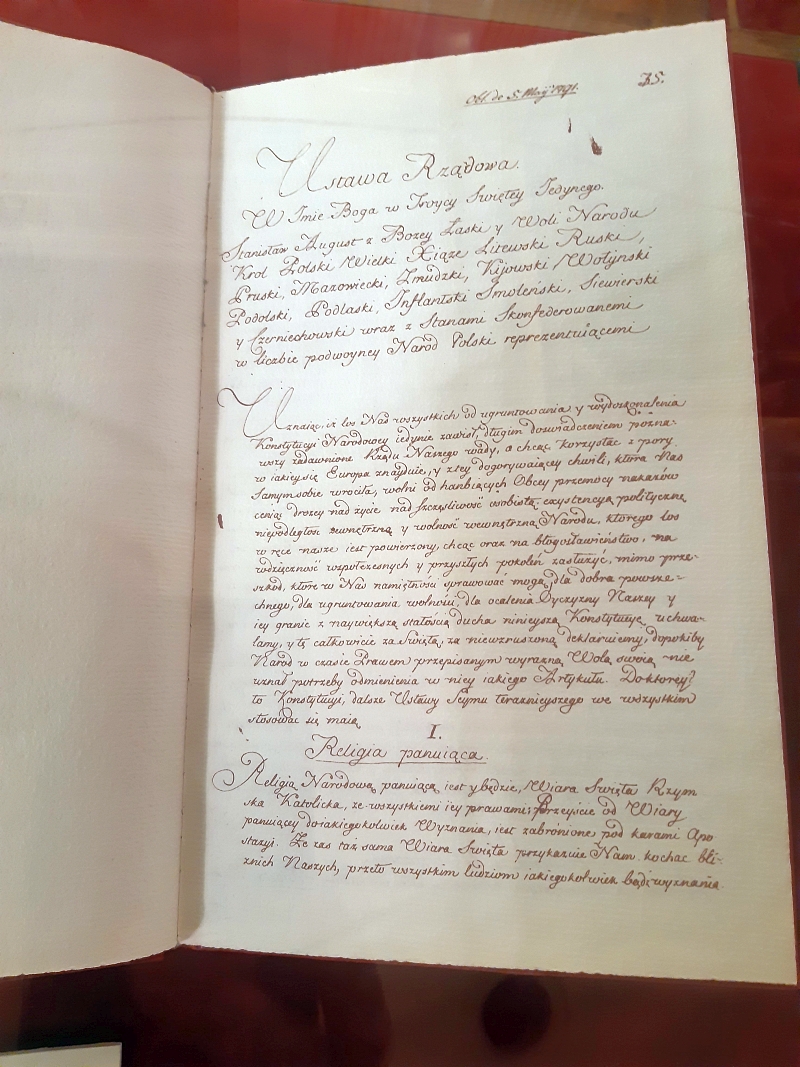 Obl. de 5. Maÿ 1791.
35.
Ustawa Rządowa.
W Imie Boga w Troycy Swiętey Iedynego.
Stanisław August z Bozey Łaski y Woli Narodu
Krol Polski Wielki Xiąze Litewski Ruski,
Pruski, Mazowiecki, Zmudzki, Kijowski, Wołynski
Podolski, Podlaski, Inflantski Smoleński, Siewierski
y Czerniechowski wraz z Stanami Skonfederowanemi
w liczbie podwoyney Narod Polski reprezentuiącemi
Uznaiąc, iz los Nas wszystkich od ugruntowania y wydoskonalenia
Konstytucyi Narodowey iedynie zawisł, długim doswiadczeniem pozna-
wszy zadawnione Rządu Naszego wady, a chcąc korzystac z pory
w iakiey się Europa znayduie, y z tey dogorywaiącey chwili, ktora Nas
samym sobie wrociła, wolni od hanbiących Obcey przemocy nakazów
ceniąc drozey nad zycie nad szczęsliwość osobistą, exystencyą polityczną
niepodległosc zewnętrzną y wolność wewnętrzną Narodu, ktorego los
w ręce nasze iest powierzony, chcąc oraz na błogosławieństwo, na
wdzięczność wspołczesnych y przyszłych pokoleń zasłuzyć, mimo prze-
szkod, ktore w Nas namiętności sprawować mogą, dla dobra powsze-
chnego, dla ugruntowania wolności, dla ocalenia Oyczyzny Naszey y
iey granic z naywiększą stałością ducha ninieyszą Konstytucyę uchwa-
lamy, y tę całkowicie za Swiętą, za niewzruszoną deklaruiemy, dopokiby
Narod w czasie Prawem przepisanym wyrazną Wolą swoią nie
uznał potrzeby odmienienia w niey iakiego Artykułu. Do ktorey?
to Konstytucyi, dalsze Ustawy Seymu teraznieyszego we wszystkim
stosowac się maią
I.
Religia panuiąca.
Religią Narodową panuiącą iest y będzie, Wiara Swięta Rzym
ska Katolicka, ze wszystkiemi iey prawami; Przeyście od Wiary
panuiącey do iakiegokolwiek Wyznania, iest zabronione pod karami Apo
stazyi. Ze zas taz sama Wiara Swięta przykazuie Nam kochac bli-
znich Naszych, przeto wszystkim ludziom iakiegokolwiek bądz wyznania